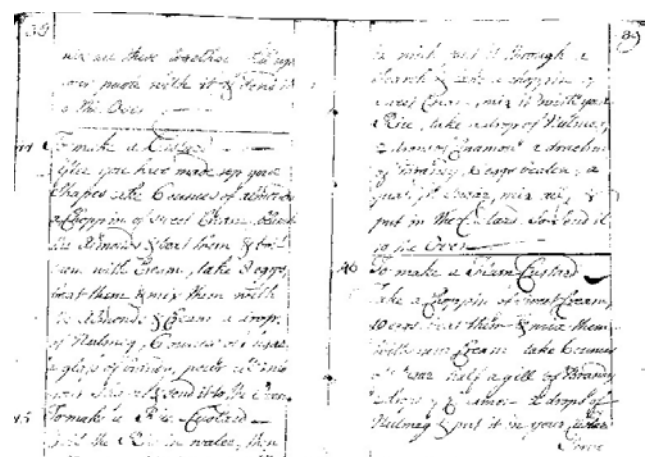 39
mix all these together fill up
your paste with it & send it
to the Oven
44 To make a Custard
After you have made up your
Shapes take 6 ounces of almonds
a Choppin of Sweet Cream, blanch
the Almonds & beat them &
with Cream, take 8 eggs,
beat them & mix them with
the Almonds & Cream a drop
of Nutmeg, 6 ounces of Sugar
a glass of brandy, pour all into
your Shapes & send it to the Oven
45 To make a Rice Custard
Boil the Rice in water, then
89
be mixt put it through a
Search & take a choppin of
sweet Cream, mix it with your
Rice, take a drop of Nutmeg,
a drop of Cinamon a
of Brandy, eggs beaten, a
Sugar, mix all, &
put in the Custard. So send it
to the Oven
46 To make a Cream Custard
Take a Choppin of Sweet Cream,
10 eggs, beat them & mix them
with your Cream take 6 ounces
of Sugar half a gill of Brandy
2 drops of Cinamon 2 drops of
Nutmeg & put it in your Custard
Serve